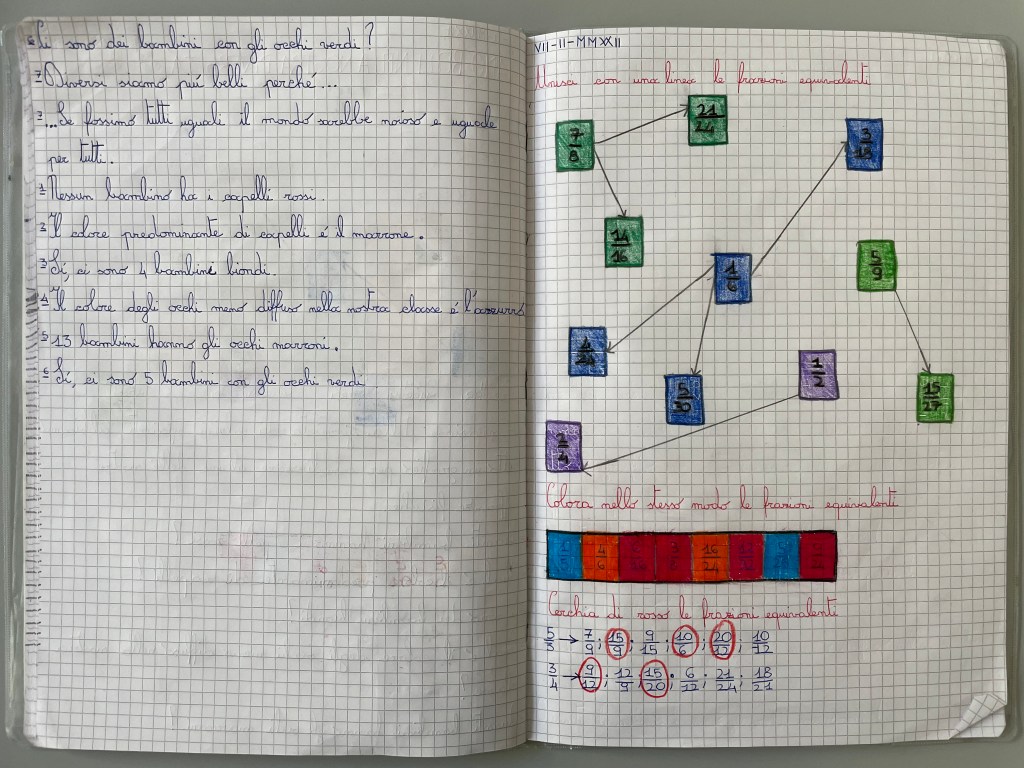 Ci sono dei bambini con gli occhi verdi?
7 Diversi siamo piú belli perché...
7 ...Se fossimo tutti uguali il mondo sarebbe noioso e uguale
per tutti.
1 Nessun bambino ha i capelli rossi.
2 Il colore predominante di capelli é il marrone.
3 Sí, ci sono 4 bambini biondi.
4 Il colore degli occhi meno diffuso nella nostra classe é l'azzurro
5 13 bambini hanno gli occhi marroni.
6 Sí, ci sono 5 bambini con gli occhi verdi
VII-II-MMXXII
Unisci con una linea le frazioni equivalenti
7/8
21/24
3/18
14/16
1/6
5/9
4/24
5/30
1/2
15/27
2/4
Colora nello stesso modo le frazioni equivalenti
4/6 16/24
Cerchia di rosso le frazioni equivalenti
5/3 → 7/9; 15/9; 9/15; 10/6; 20/12; 10/12
3/4 → 9/12; 12/9; 15/20; 6/12; 21/24; 18/21